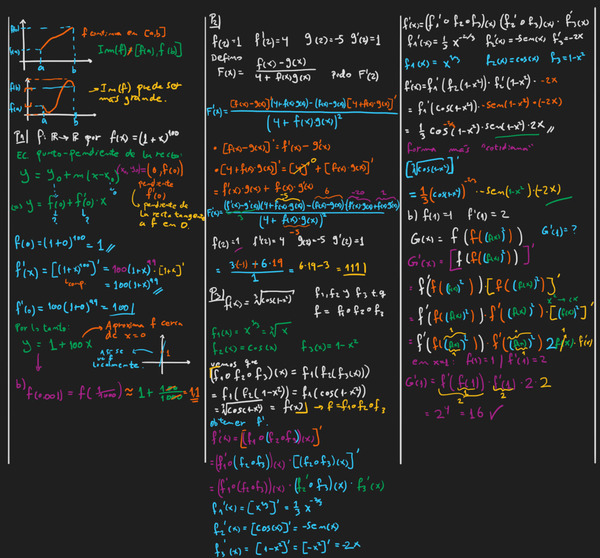 f(b)
f(a)
a b
f continua en [a,b]
Im(f) = [f(a), f(b)]
f(b)
f(a)
a b
→ Im(f) puede ser
más grande.
P1 f: ℝ→ℝ por f(x) = (1+x)^100
EC. punto-pendiente de la recta:
y = y₀ + m(x-x₀) (x₀,y₀) = (0, f(0))
pendiente
f'(0)
y = f(0) + f'(0)·x
pendiente de
la recta tangente
a f en 0.
f(0) = (1+0)^100 = 1
f'(x) = [(1+x)^100]' = 100(1+x)^99 · [1+x]'
= 100(1+x)^99
f'(0) = 100(1+0)^99 = 100
Por lo tanto:
y = 1 + 100x
Aproxima f cerca
de x=0
así se
ve f
localmente
1
b) f(0.001) = f(1/1000) ≈ 1 + 100/1000 = 1,1
P2
f(2)=1 f'(2)=4 g(2)=-5 g'(2)=1
Defino
F(x) = f(x)-g(x) / 4+f(x)g(x) Pido F'(2)
F'(x) = [f(x)-g(x)]'(4+f(x)g(x)) - (f(x)-g(x))[4+f(x)g(x)]' / (4+f(x)·g(x))²
• [f(x)-g(x)]' = f'(x)-g'(x)
• [4+f(x)·g(x)]' = [4]' + [f(x)·g(x)]'
= f'(x)g(x) + f(x)·g'(x)
F'(x) = (f'(x)-g'(x))(4+f(x)·g(x)) - (f(x)-g(x))(f'(x)g(x)+f(x)g'(x)) / (4+f(x)·g(x))²
f(2)=1 f'(2)=4 g(2)=-5 g'(2)=1
= 3(-1) + 6·19 / 1 = 6·19-3 = 111
P3 f(x) = ∛cos(1-x²) f₁, f₂ y f₃ t.q
f = f₁ o f₂ o f₃
f₁(x) = x^1/3 = ∛x
f₂(x) = cos(x) f₃(x) = 1-x²
Vemos que
(f₁ o f₂ o f₃)(x) = f₁(f₂(f₃(x)))
= f₁(f₂(1-x²)) = f₁(cos(1-x²))
= ∛cos(1-x²) = f(x) → f = f₁ o f₂ o f₃
obtener f'.
f'(x) = [(f₁ o (f₂ o f₃))(x)]'
= (f₁' o (f₂ o f₃))(x) · [(f₂ o f₃)(x)]'
= (f₁' o (f₂ o f₃))(x) · (f₂' o f₃)(x) · f₃'(x)
f₁'(x) = [x^1/3]' = 1/3 x^-2/3
f₂'(x) = [cos(x)]' = -sen(x)
f₃'(x) = [1-x²]' = [-x²]' = -2x
f'(x) = (f₁' o f₂ o f₃)(x) (f₂' o f₃)(x) · f₃'(x)
f₁'(x) = 1/3 x^-2/3 f₂'(x) = -sen(x) f₃' = -2x
f₁(x) = x^1/3 f₂(x) = cos(x) f₃ = 1-x²
f'(x) = f₁'(f₂(1-x²)) · f₂'(1-x²) · -2x
= f₁'(cos(1-x²)) · -sen(1-x²) · (-2x)
= 1/3 cos^-2/3(1-x²) · sen(1-x²) · 2x
forma más "cotidiana"
[∛cos(1-x²)]'
= 1/3 (cos(1-x²))^-2/3 · -sen(1-x²) · (-2x)
b) f(1)=1 f'(1)=2
G(x) = f(f((f(x))²)) G'(1) = ?
G'(x) = [f(f((f(x))²))]'
= f'(f((f(x))²)) · [f((f(x))²)]'
= f'(f((f(x))²)) · f'((f(x))²) · [(f(x))²]'
= f'(f((f(x))²)) · f'((f(x))²) · 2 f(x) · f'(x)
en x=1 f(1)=1 f'(1)=2
G'(1) = f'(f(1)) · f'(1) · 2 · 2
= 2⁴ = 16 ✓